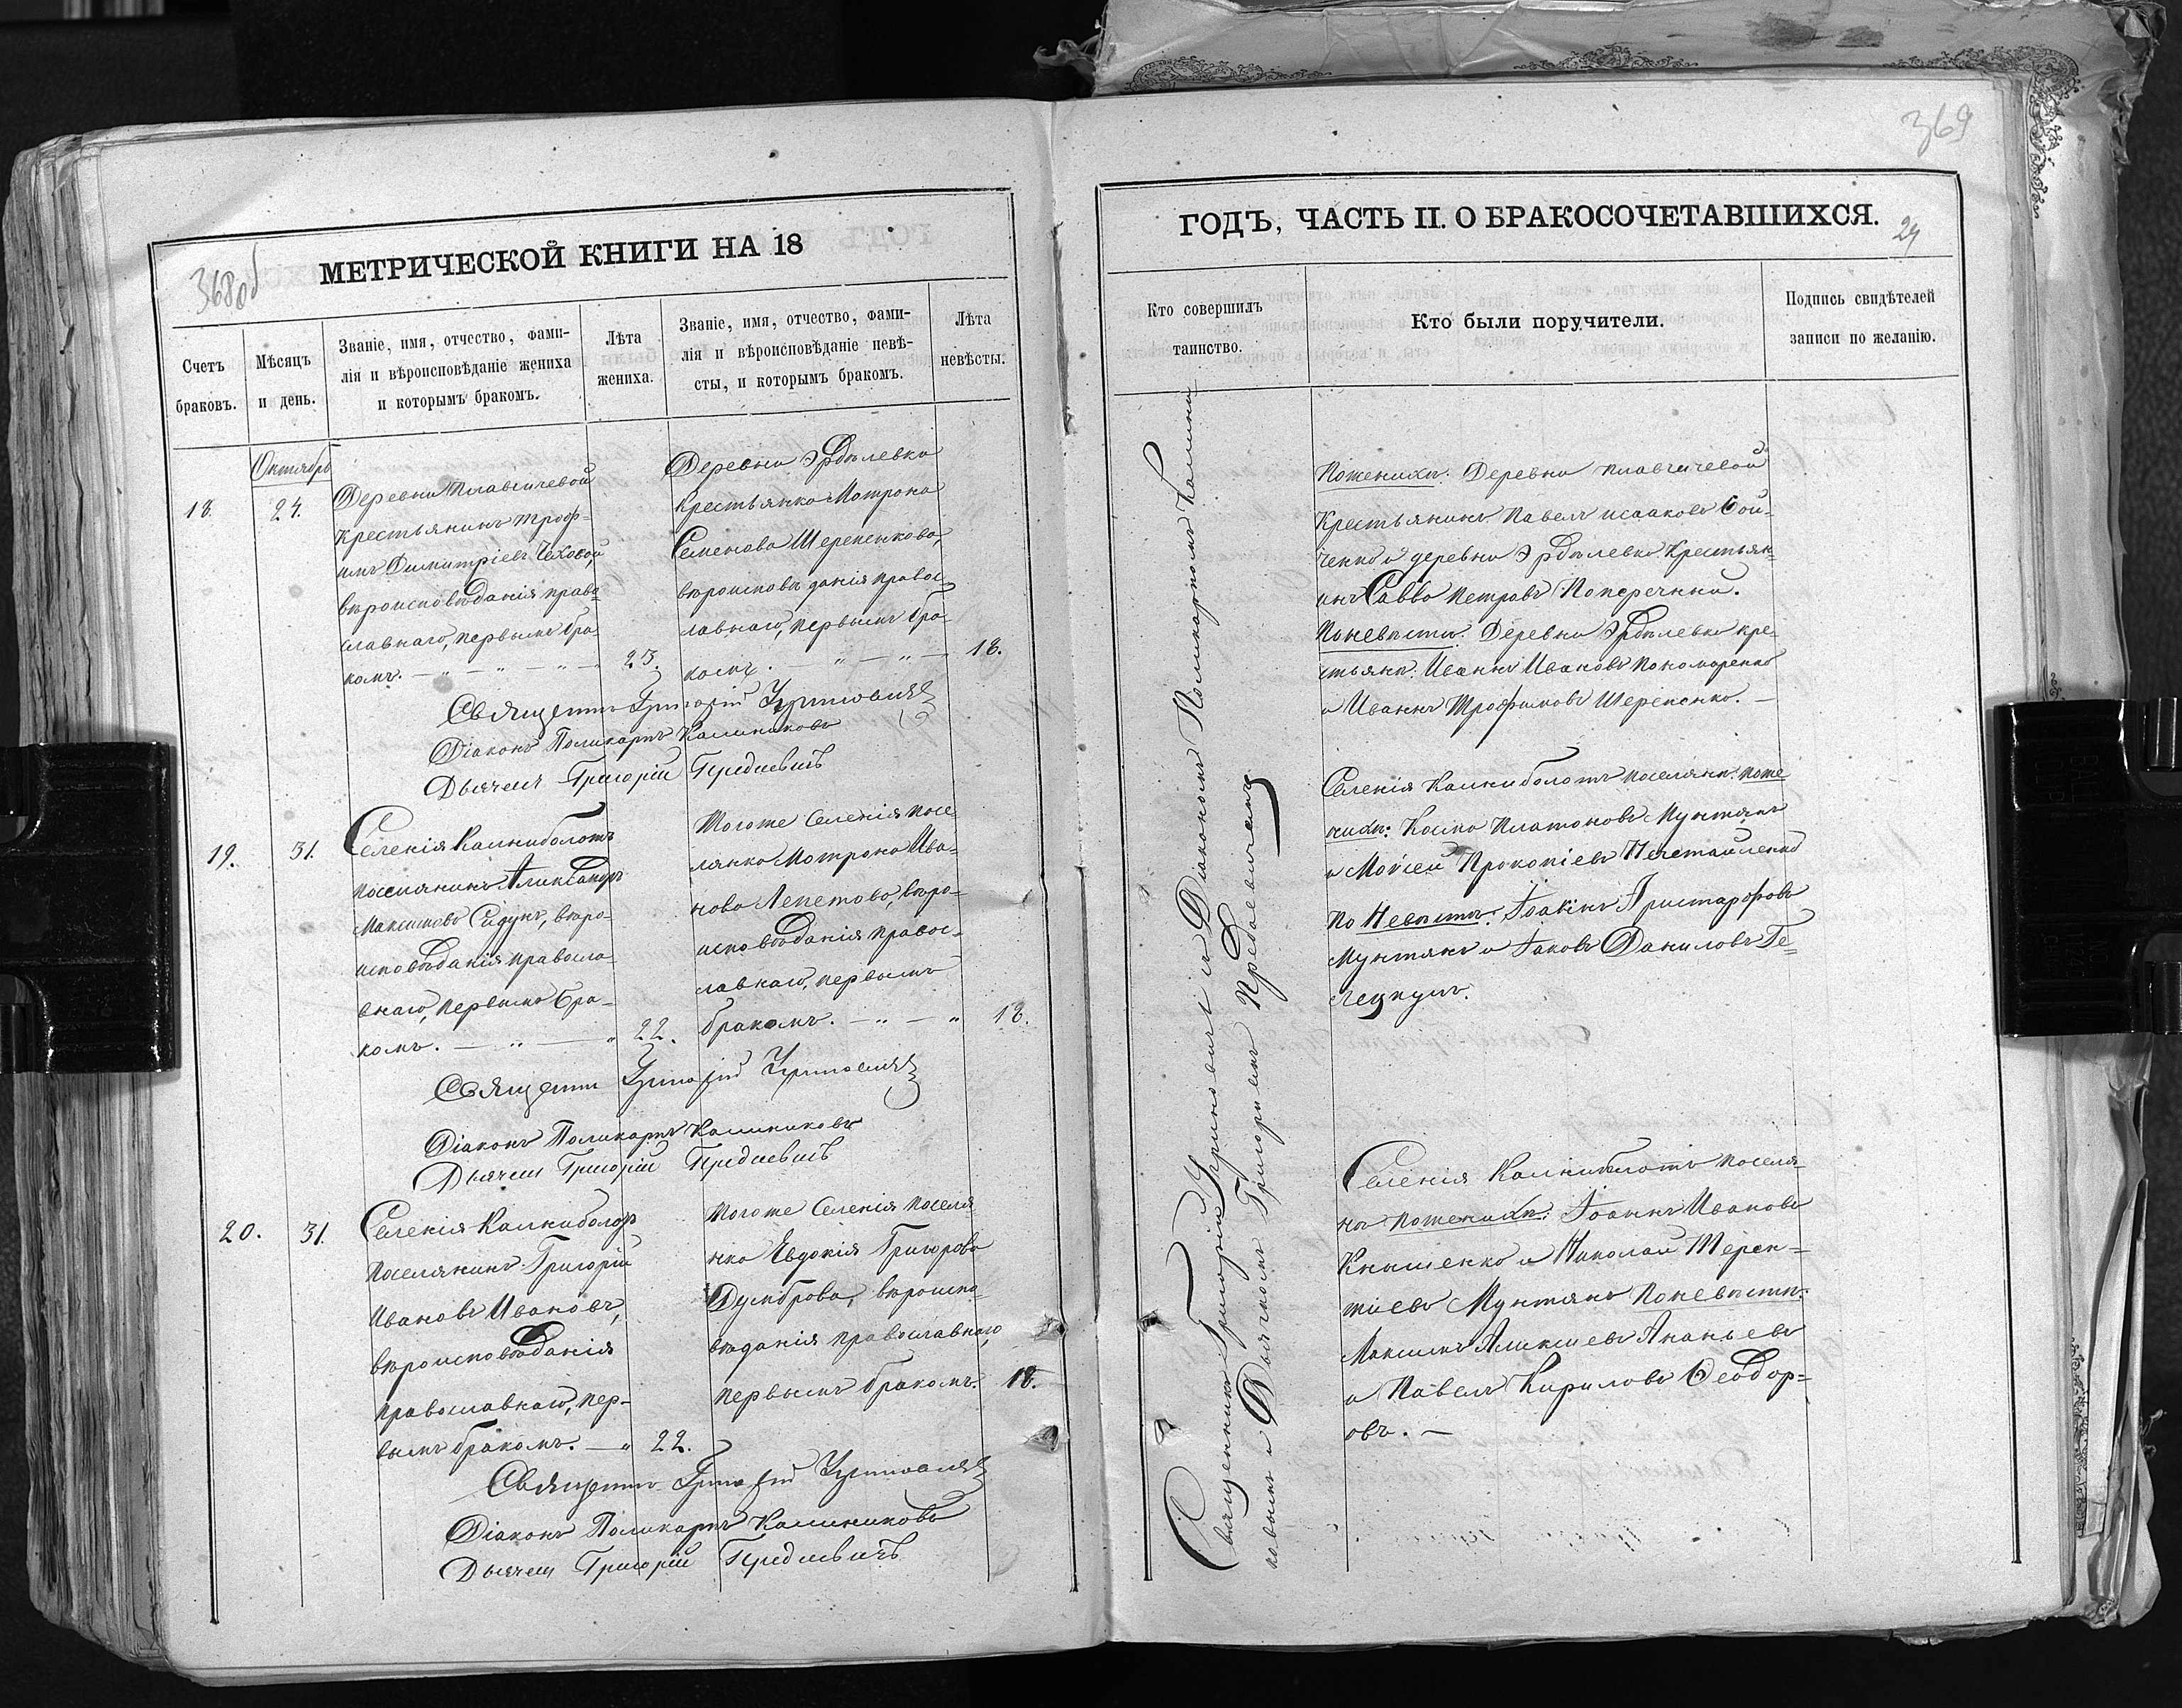 368об
МЕТРИЧЕСКОЙ КНИГИ НА 18
Счетъ
браковъ.
Мѣсяцъ
и день.
Званіе, имя, отчество, фами-
лія и вѣроисповѣданіе жениха
и которымъ бракомъ.
Лѣта
жениха.
Званіе, имя, отчество, фами-
лія и вѣроисповѣданіе невѣ-
сты, и которымъ бракомъ.
Лѣта
невѣсты.
Октябрь
18.
24.
Деревни Плавличевой
Крестьянинъ Троф-
имъ Димитріевъ Чеховой,
вѣроисповѣданія право-
славнаго, первымъ бра-
комъ.
23.
Деревни Эрделевки
Крестьянка Мотрона
Семенова Шерепенкова,
вѣроисповѣданія правос-
лавнаго, первымъ бра-
комъ.
18.
Священникъ Григорій
Діаконъ Поликарпъ Калиниковъ
Дьячекъ Григорій
19.
31.
Селенія Камниболотъ
поселянинъ Александръ
Максимовъ Сидунъ, вѣро-
исповѣданія правосла-
внаго, первымъ бра-
комъ.
22.
Тогоже Селенія посе-
лянка Мотрона Ива-
нова Лепетова, вѣро-
исповѣданія правос-
лавнаго, первымъ
бракомъ.
18.
Священникъ Григорій
Діаконъ Поликарпъ Калиниковъ
Дьячекъ Григорій
20.
31.
Селенія Камниболотъ
поселянинъ Григорій
Ивановъ Ивановъ,
вѣроисповѣданія
православнаго, пер-
вымъ бракомъ.
22.
Тогоже Селенія поселя-
нка Евдокія Григорова
Думброва, вѣроиспо-
вѣданія православнаго,
первымъ бракомъ.
18.
Священникъ Григорій
Діаконъ Поликарпъ Калиниковъ
Дьячекъ Григорій
369
ГОДЪ, ЧАСТЬ II. О БРАКОСОЧЕТАВШИХСЯ.
29
Кто совершилъ
таинство.
Кто были поручители.
Подпись свидѣтелей
записи по желанію.
Священникъ Григорій съ Діакономъ Поликарпомъ Калини-
ковымъ и Дьячкомъ Григоріемъ
По женихѣ: Деревни Плавличевой
Крестьянинъ Павелъ Исааковъ Бой-
ченко и деревни Эрделевки Крестьян-
инъ Савва Петровъ Поперечный.
По невѣстѣ: Деревни Эрделевки кре-
стьяне: Иванъ Ивановъ Пономаренко
и Иванъ Трофимовъ Шерепенко.
Селенія Камниболотъ поселяне: по же-
нихѣ: Косма Платоновъ Мунтянъ
и Моисей Прокопіевъ
по Невѣстѣ: Іоакимъ Аристарховъ
Мунтянъ и Іаковъ Даниловъ Ге-
Селенія Камниболотъ поселя-
не: по женихѣ: Іоаннъ Ивановъ
Кнышенко и Николай Терен-
тіевъ Мунтянъ по невѣстѣ:
Максимъ Алексіевъ Ананьевъ
и Павелъ Кириловъ Ѳеодор-
овъ.